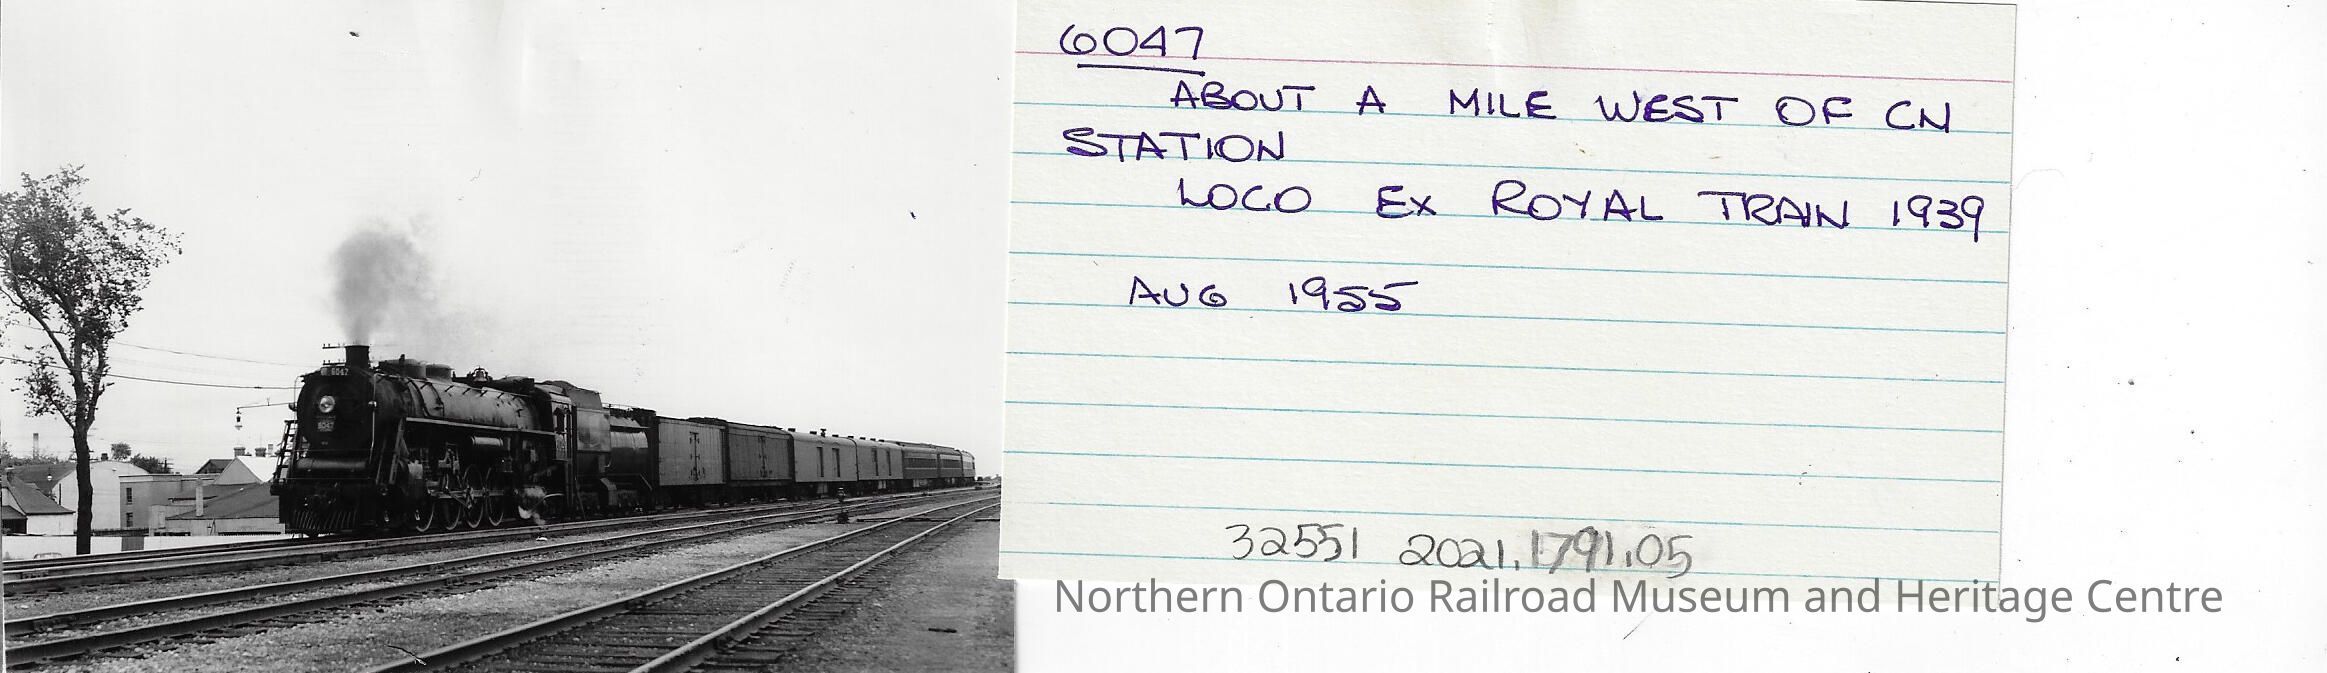 6047
6047
6047
ABOUT A MILE WEST OF CN
STATION
LOCO EX ROYAL TRAIN 1939
AUG 1955
32551 2021.1791.05
Northern Ontario Railroad Museum and Heritage Centre